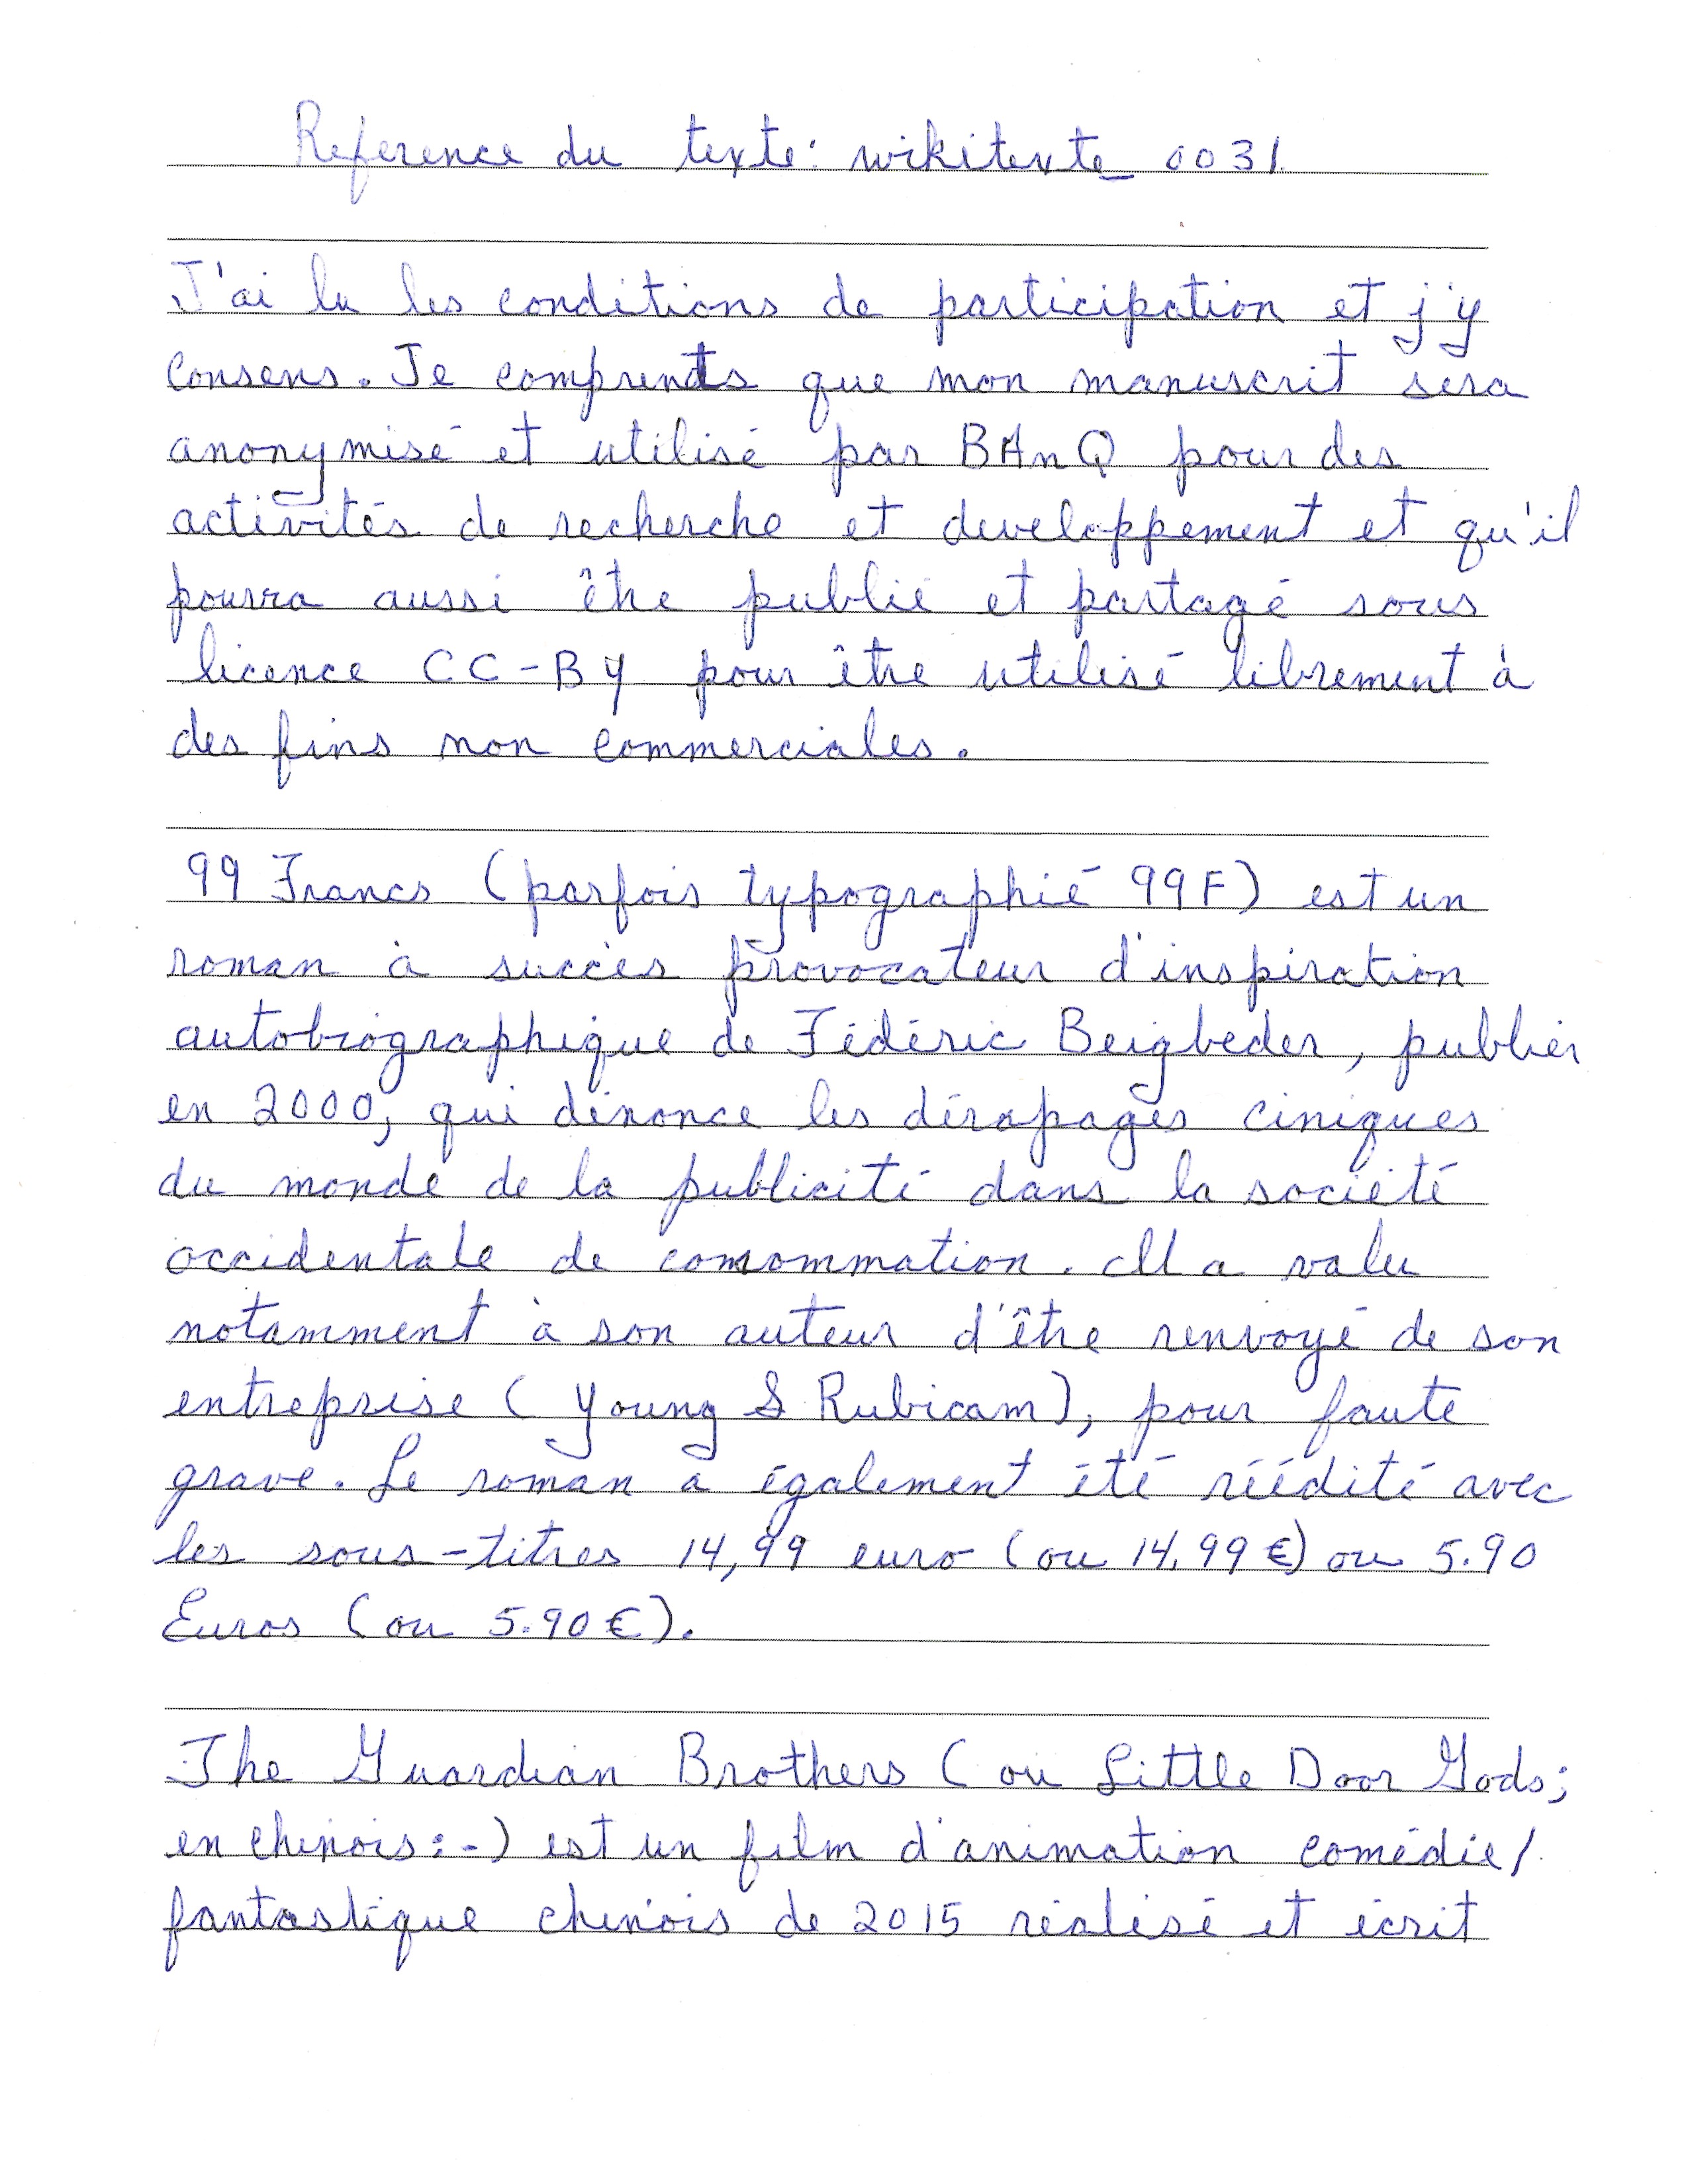 Reference du texte: wikitexte_0031
J'ai lu les conditions de participation et j'y
consens. Je comprends que mon manuscrit sera
anonymisé et utilisé par BAnQ pour des
activités de recherche et developpement et qu'il
pourra aussi être publié et partagé sous
licence CC-BY pour être utilisé librement à
des fins non commerciales.
99 Francs (parfois typographié 99F) est un
roman à succès provocateur d'inspiration
autobiographique de Fédéric Beigbeder, publier
en 2000, qui dénonce les dérapages ciniques
du monde de la publicité dans la société
occidentale de consommation. Il a valu
notamment à son auteur d'être renvoyé de son
entreprise (Young & Rubicam), pour faute
grave. Le roman a également été réédité avec
les sous-titres 14,99 euro (ou 14.99€) ou 5.90
Euros (ou 5.90€).
The Guardian Brothers (ou Little Door Gods;
en chinois:-) est un film d'animation comédie/
fantastique chinois de 2015 réalisé et écrit